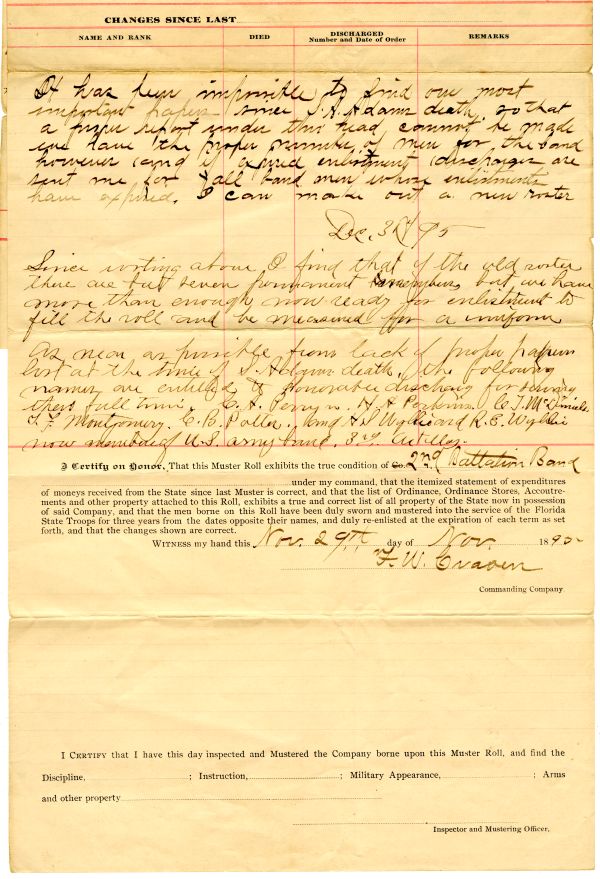 CHANGES SINCE LAST
NAME AND RANK DIED DISCHARGED Number and Date of Order REMARKS
It has been impossible to find our most
important papers since S. A. Adams death, so that
a report under this head cannot be made
we have the proper number of men for the band
however and if expired enlistment discharges are
sent me for all band men whose enlistments
have expired. I can make out a new roster
Dec. 3rd 95
Since writing above I find that of the old roster
there are but seven permanent members but we have
more than enough now ready for enlistment to
fill the roll and be measured for a uniform
As near as possible from lack of proper papers
lost at the time of S. Adams death, the following
names are entitled to honorable discharge for serving
their full time. C. A. Perkins
T. F. Montgomery. C. B. and H. S. Wyllie and R. E. Wyllie
now member of U.S. army band, 3rd
I Certify on Honor, That this Muster Roll exhibits the true condition of Co. 2nd Battalion Band
under my command, that the itemized statement of expenditures
of moneys received from the State since last Muster is correct, and that the list of Ordinance, Ordinance Stores, Accoutre-
ments and other property attached to this Roll, exhibits a true and correct list of all property of the State now in possession
of said Company, and that the men borne on this Roll have been duly sworn and mustered into the service of the Florida
State Troops for three years from the dates opposite their names, and duly re-enlisted at the expiration of each term as set
forth, and that the changes shown are correct.
WITNESS my hand this Nov. 29th day of Nov. 1895
F. W. Craven
Commanding Company
I CERTIFY that I have this day inspected and Mustered the Company borne upon this Muster Roll, and find the
Discipline, ; Instruction, ; Military Appearance, ; Arms
and other property
Inspector and Mustering Officer.